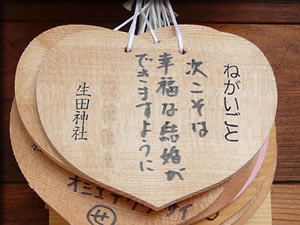 ねがいごと
次こそは
幸福な結婚が
できますように
生田神社